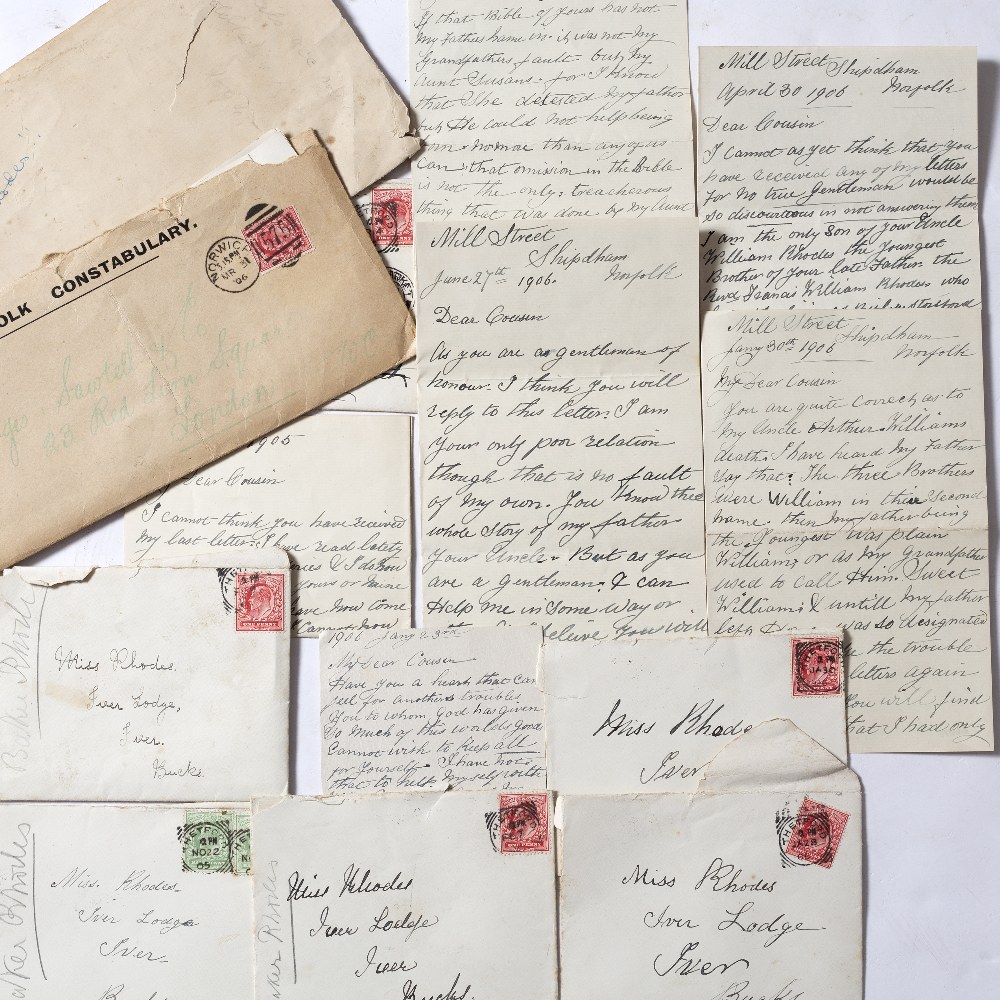 If that Bible of yours has not
my Fathers name in - it was not my
Grandfathers fault - but my
Aunt Susans - for I know
that She detested my father
but He could not help being
born no more than any of us
can: that omission in the Bible
is not the only: treacherous
thing that was done by my Aunt
Mill Street
Shipdham
June 27th 1906. Norfolk
Dear Cousin
As you are a gentleman of
honour. I think you will
reply to this letter. I am
your only poor relation
though that is no fault
of my own. You know the
whole Story of my father
your Uncle. But as you
are a gentleman. I can
Help me in Some way or
believe you will
Mill Street Shipdham
April 30 1906 Norfolk
Dear Cousin
I cannot as yet think that you
have received any of my letters
for no true gentleman would be
so discourteous in not answering them
I am the only Son of your Uncle
William Rhodes the Youngest
Brother of your late Father the
Revd Francis William Rhodes who
Mill Street Shipdham
Jany 30th 1906 Norfolk
My Dear Cousin
You are quite correct as to
my Uncle Arthur Williams
death. I have heard my Father
say that: The three Brothers
were William in their Second
name. then my father being
the Youngest was plain
William; or as my Grandfather
used to call Him. Sweet
William. & untill my father
was so designated
the trouble
letters again
You will find
that I had only
OLK CONSTABULARY.
NORWICH
MR 31
06
575
Sawtell
Red Lion Square
London
1905
Dear Cousin
I cannot think you have received
my last letter. I have read lately
yours or mine
have now come
Cannot now
1906 Jany 23rd
My Dear Cousin
Have you a heart that can
feel for anothers troubles
You to whom God has given
So much of this worlds goods
Cannot wish to Keep all
for Yourself. I have not
that to help myself with
Miss Rhodes.
Iver Lodge,
Iver.
Bucks.
Baker Rhodes
THETFORD
ONE PENNY
Miss Rhodes
Iver
THETFORD
JA 30
Miss. Rhodes
Iver Lodge
Iver
THETFORD
NO 22
05
Miss Rhodes
Iver Lodge
Iver
Bucks.
Baker Rhodes
Miss Rhodes
Iver Lodge
Iver
Bucks
THETFORD
06